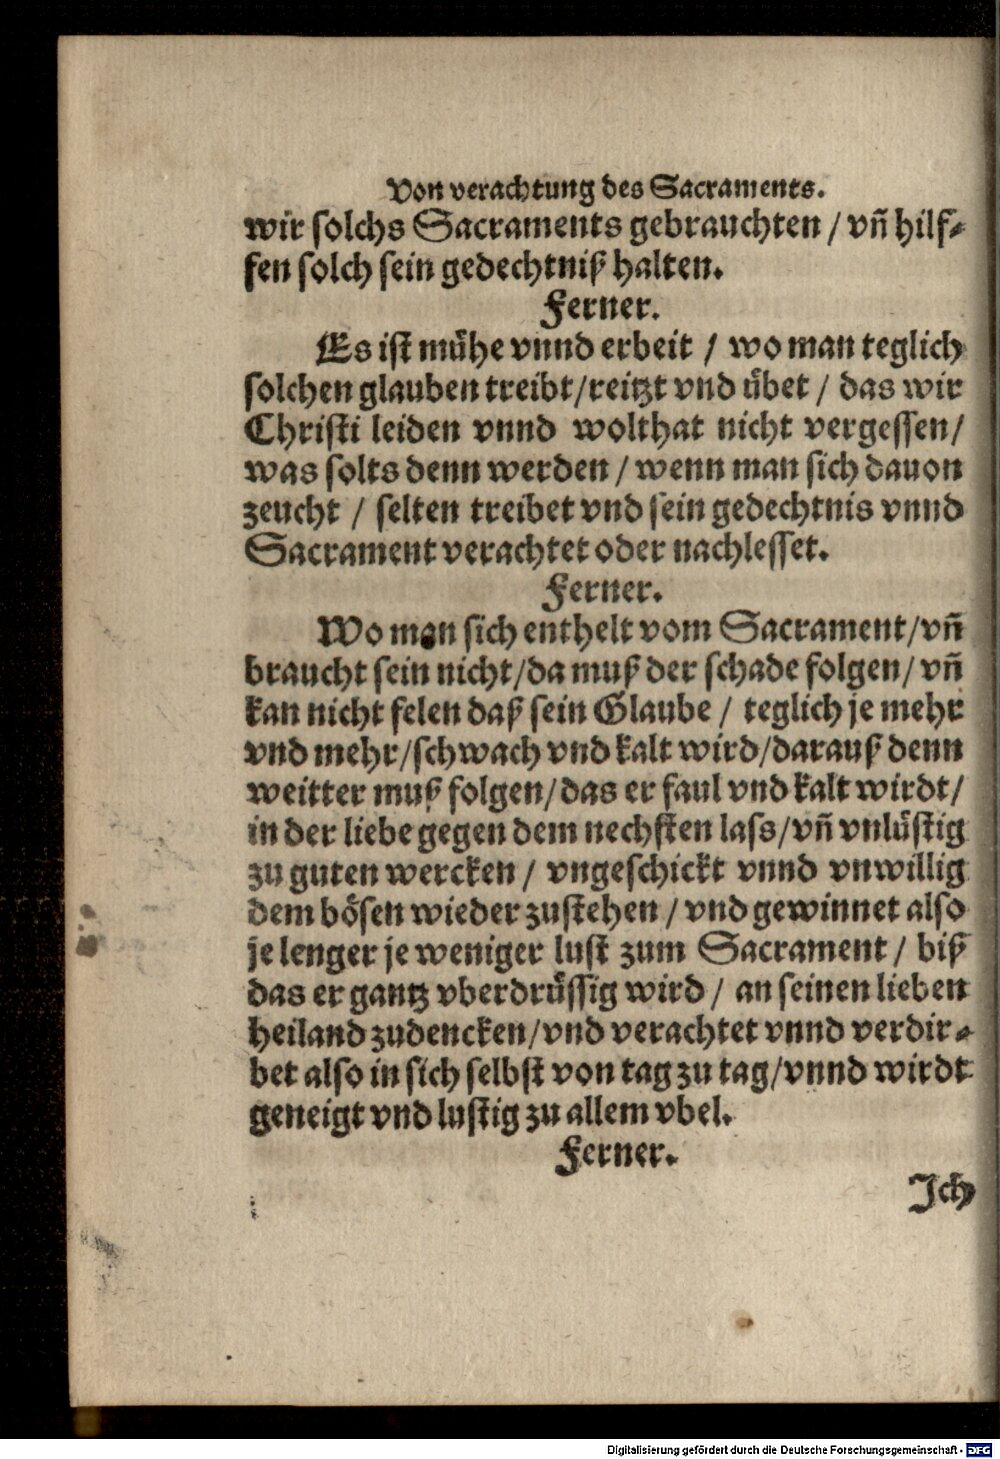 Von verachtung des Sacraments.
wir solchs Sacraments gebrauchten / vñ hilf⸗
fen solch sein gedechtniß halten.
Ferner.
Es ist mühe vnnd erbeit / wo man teglich
solchen glauben treibt/reitzt vnd übet / das wir
Christi leiden vnnd wolthat nicht vergessen/
was solts denn werden / wenn man sich dauon
zeucht / selten treibet vnd sein gedechtnis vnnd
Sacrament verachtet oder nachlesset.
Ferner.
Wo man sich enthelt vom Sacrament/vñ
braucht sein nicht/da muß der schade folgen/ vñ
kan nicht felen daß sein Glaube / teglich je mehr
vnd mehr/schwach vnd kalt wird/darauß denn
weitter muß folgen/das er faul vnd kalt wirdt/
in der liebe gegen dem nechsten lass/vñ vnlüstig
zu guten wercken / vngeschickt vnnd vnwillig
dem bösen wieder zustehen / vnd gewinnet also
je lenger je weniger lust zum Sacrament / biß
das er gantz vberdrüssig wird / an seinen lieben
heiland zudencken/vnd verachtet vnnd verdir⸗
bet also in sich selbst von tag zu tag/vnnd wirdt
geneigt vnd lustig zu allem vbel.
Ferner.
Ich
Digitalisierung gefördert durch die Deutsche Forschungsgemeinschaft - DFG